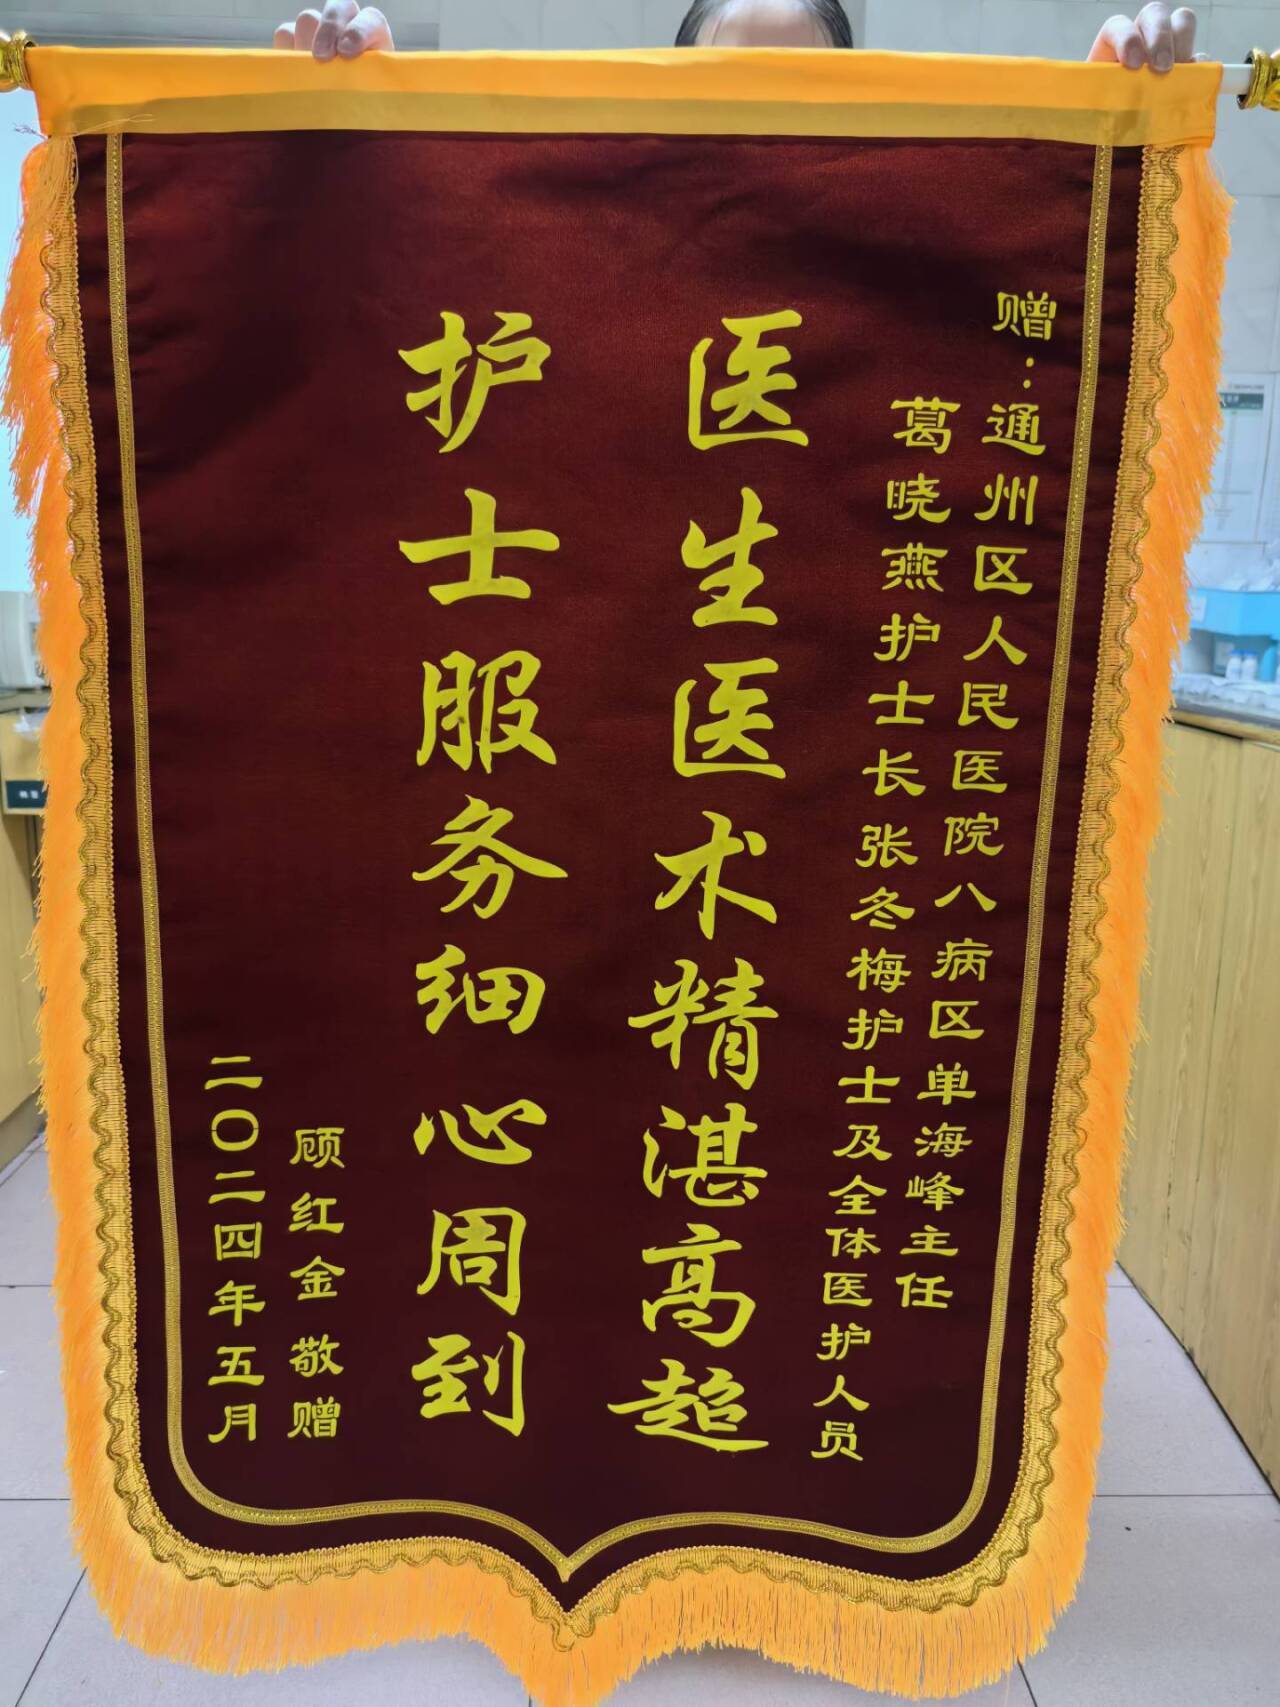 赠：通州区人民医院八病区单海峰主任
葛晓燕护士长张冬梅护士及全体医护人员
医生医术精湛高超
护士服务细心周到
顾红金敬赠
二〇二四年五月